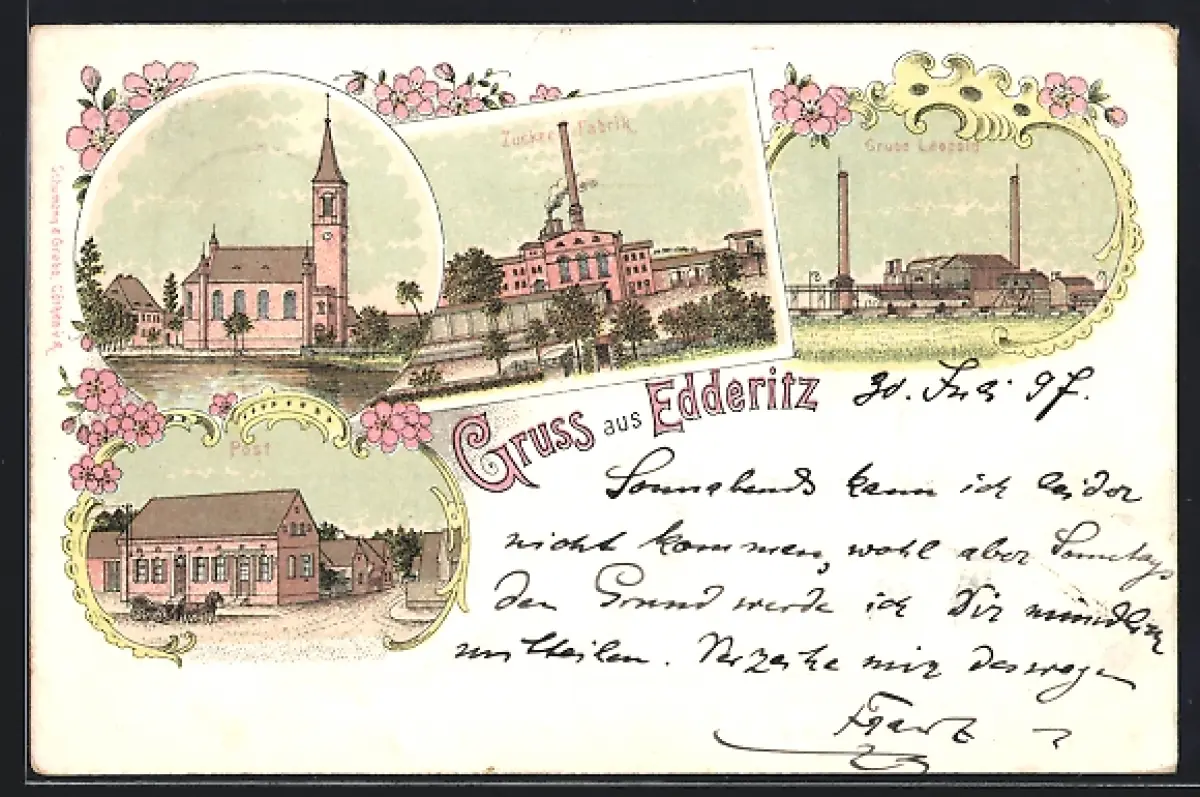 Zucker Fabrik
Grube Leopold
Post
Gruss aus Edderitz
30. Juli 97.
Sonnabends kann ich leider
nicht kommen, wohl aber Sonntags
den Grund werde ich Dir mündlich
mittheilen. Verzeihe mir deswegen
Cöthen i/A.